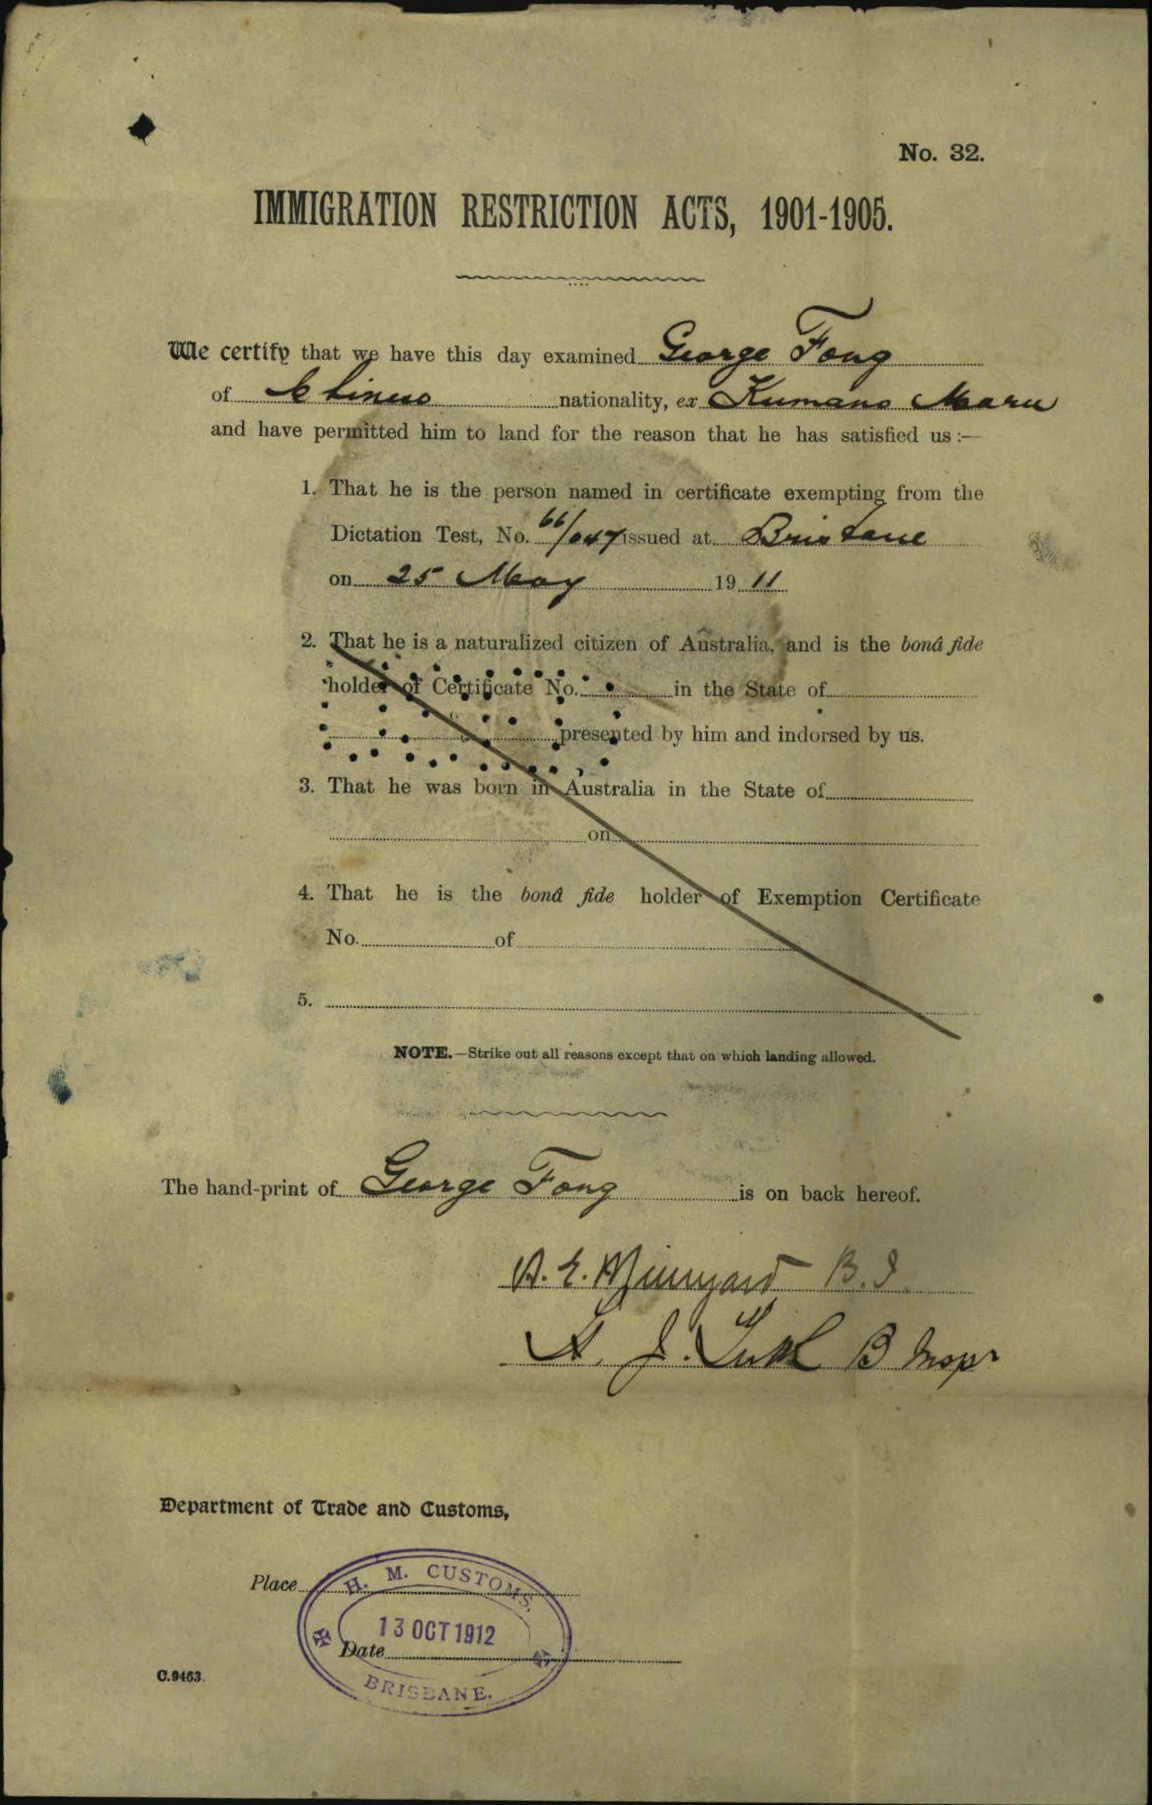 No. 32.
IMMIGRATION RESTRICTION ACTS, 1901-1905.
We certify that we have this day examined George Fong
of Chinese nationality, ex Kumano Maru
and have permitted him to land for the reason that he has satisfied us :—
1. That he is the person named in certificate exempting from the
Dictation Test, No. 66/047 issued at Brisbane
on 25 May 1911
2. That he is a naturalized citizen of Australia, and is the bonâ fide
holder of Certificate No. in the State of
presented by him and indorsed by us.
3. That he was born in Australia in the State of
on
4. That he is the bonâ fide holder of Exemption Certificate
No. of
5.
NOTE.—Strike out all reasons except that on which landing allowed.
The hand-print of George Fong is on back hereof.
A. E. B.I.
A. J. B Inspr
Department of Trade and Customs,
Place
H. M. CUSTOMS,
13 OCT 1912
Date
BRISBANE.
C.9463.